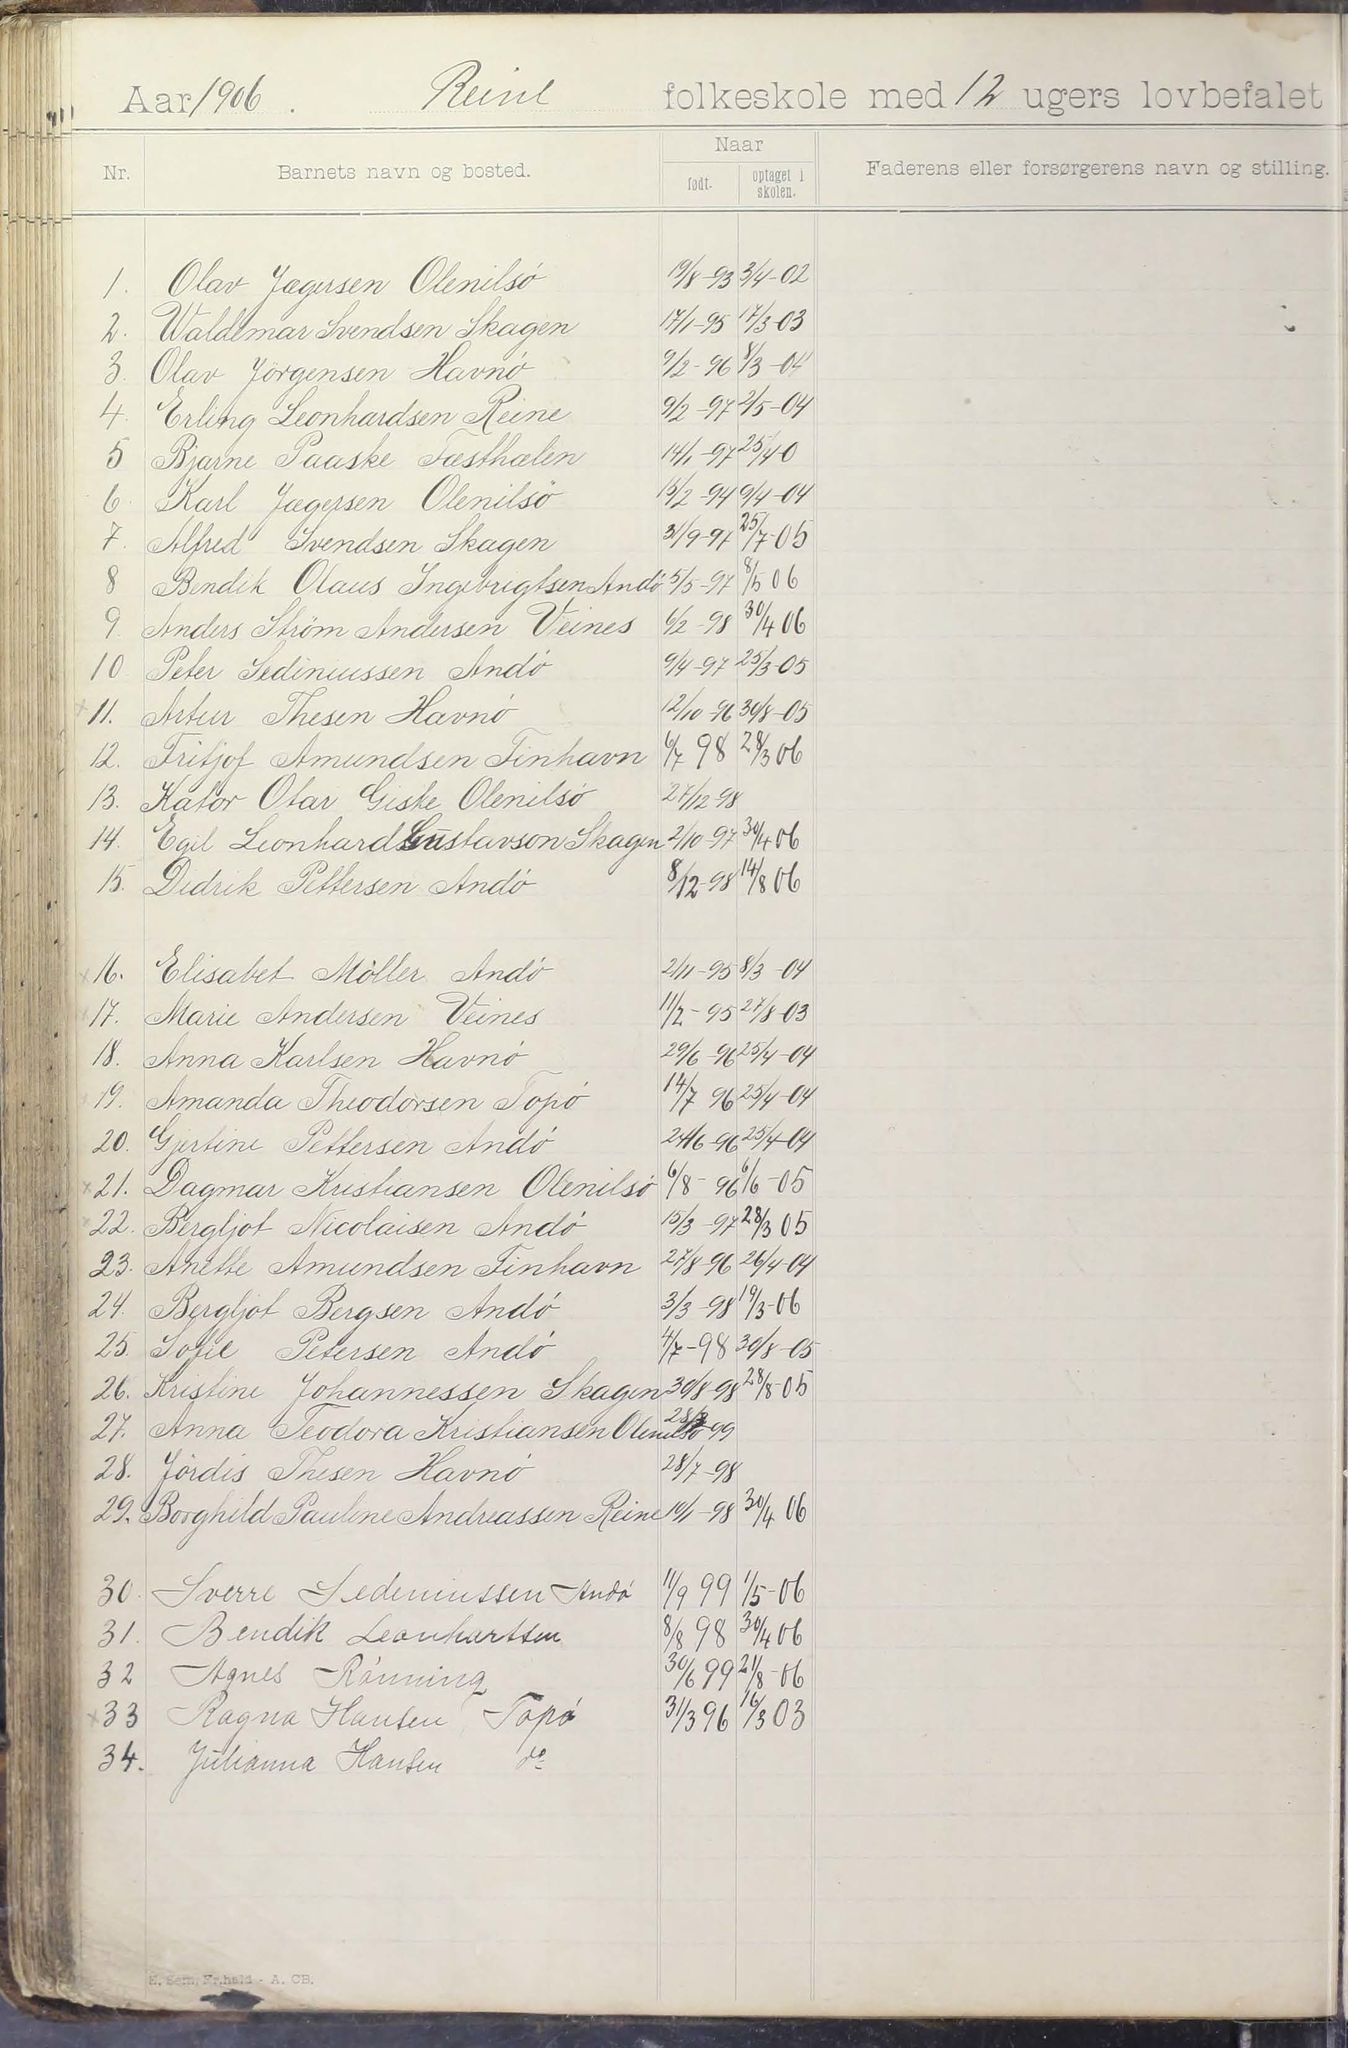 Aar 1906. Reine folkeskole med 12 ugers lovbefalet
Nr. Barnets navn og bosted. Naar Faderens eller forsørgerens navn og stilling.
født. optaget i skolen.
1. Olav Jægersen Olenilsö 19/8-93 3/4-02
2. Waldemar Svendsen Skagen 17/1-95 17/3-03
3. Olav Jörgensen Havnö 9/2-96 8/3-04
4. Erling Leonhardsen Reine 9/2-97 2/5-04
5 Bjarne Paaske Fæsthælen 14/1-97 25/4 0
6. Karl Jægersen Olenilsö 15/2-94 9/4-04
7. Alfred Svendsen Skagen 3/9-97 25/7-05
8 Bendik Olaus Ingebrigtsen Andö 5/5-97 8/5 06
9. Anders Strøm Andersen Veines 6/2-98 30/4 06
10 Peter Sediniussen Andö 9/4-97 25/3-05
11. Artur Thesen Havnö 12/10-96 30/8-05
12. Fritjof Amundsen Finhavn 6/7 98 28/3 06
13. Kator Otar Giske Olenilsö 27/12 98
14. Egil Leonhard Gustavson Skagen 2/10-97 30/4 06
15. Didrik Pettersen Andö 8/12-98 14/8 06
16. Elisabet Möller Andö 2/11-95 8/3-04
17. Marie Andersen Veines 11/2-95 27/8-03
18. Anna Karlsen Havnö 29/6-96 25/4-04
19. Amanda Theodorsen Topö 14/7 96 25/4-04
20. Gjertine Pettersen Andö 24/6-96 25/4-04
21. Dagmar Kristiansen Olenilsö 6/8-96 6/6-05
22. Bergljot Nicolaisen Andö 15/3-97 28/3 05
23. Anette Amundsen Finhavn 27/8-96 26/4-04
24. Bergljot Bergsen Andö 3/3-98 19/3-06
25. Sofie Petersen Andö 4/7-98 30/8-05
26. Kristine Johannessen Skagen 30/8-98 28/8-05
27. Anna Teodora Kristiansen Olenilsö 99
28. Jördis Thesen Havnö 28/7-98
29. Borghild Pauline Andreassen Reine 10/1-98 30/4 06
30. Sverre Sedeniussen Andö 11/9 99 1/5-06
31. Bendik Leonhartsen 8/8 98 30/4 06
32 Agnes Rönning 30/6 99 21/8-06
x33 Ragna Hansen Topö 31/3 96 16/3 03
34. Julianna Hansen do
E. Sem, Fr.hald - A. CB.